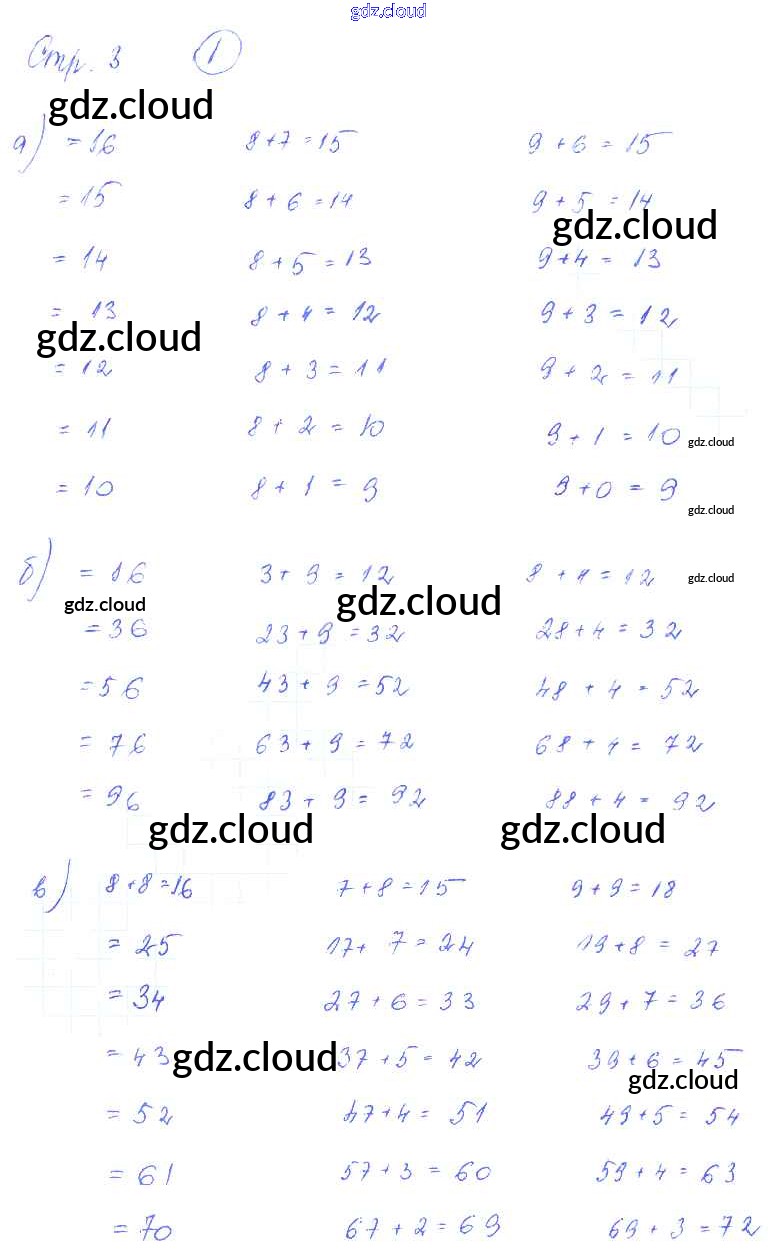 gdz.cloud
Стр. 3 1
gdz.cloud
а) = 16 8+7 = 15 9 + 6 = 15
= 15 8 + 6 = 14 9 + 5 = 14
gdz.cloud
= 14 8 + 5 = 13 9+4 = 13
= 13 8 + 4 = 12 9 + 3 = 12
gdz.cloud
= 12 8 + 3 = 11 9 + 2 = 11
= 11 8 + 2 = 10 9 + 1 = 10 gdz.cloud
= 10 8 + 1 = 9 9 + 0 = 9
gdz.cloud
б) = 16 3 + 9 = 12 8 + 4 = 12 gdz.cloud
gdz.cloud gdz.cloud
= 36 23 + 9 = 32 28 + 4 = 32
= 56 43 + 9 = 52 48 + 4 = 52
= 76 63 + 9 = 72 68 + 4 = 72
= 96 83 + 9 = 92 88 + 4 = 92
gdz.cloud gdz.cloud
в) 8+8=16 7+8=15 9+9=18
= 25 17+ 7 = 24 19+8 = 27
= 34 27 + 6 = 33 29 + 7 = 36
= 43 gdz.cloud 37 + 5 = 42 39 + 6 = 45
gdz.cloud
= 52 47+4 = 51 49+5 = 54
= 61 57 + 3 = 60 59 + 4 = 63
= 70 67 + 2 = 69 69 + 3 = 72